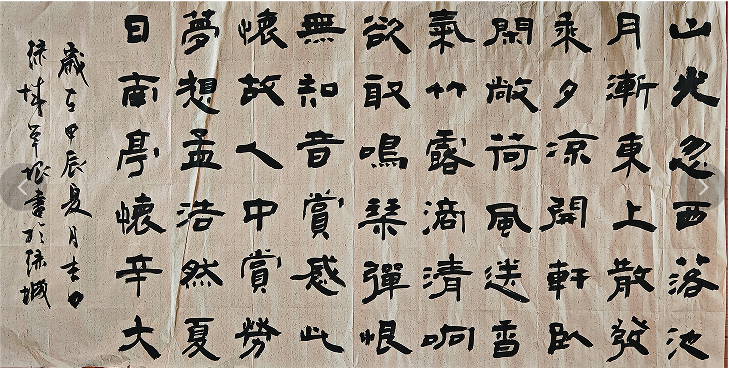 山光忽西落池
月漸東上散發
乘夕凉開軒臥
閑敞荷風送香
氣竹露滴清响
欲取鳴琴彈恨
無知音賞感此
懷故人中賞勞
夢想孟浩然夏
日南亭懷辛大
歲在甲辰夏月吉日
绿城書於绿城